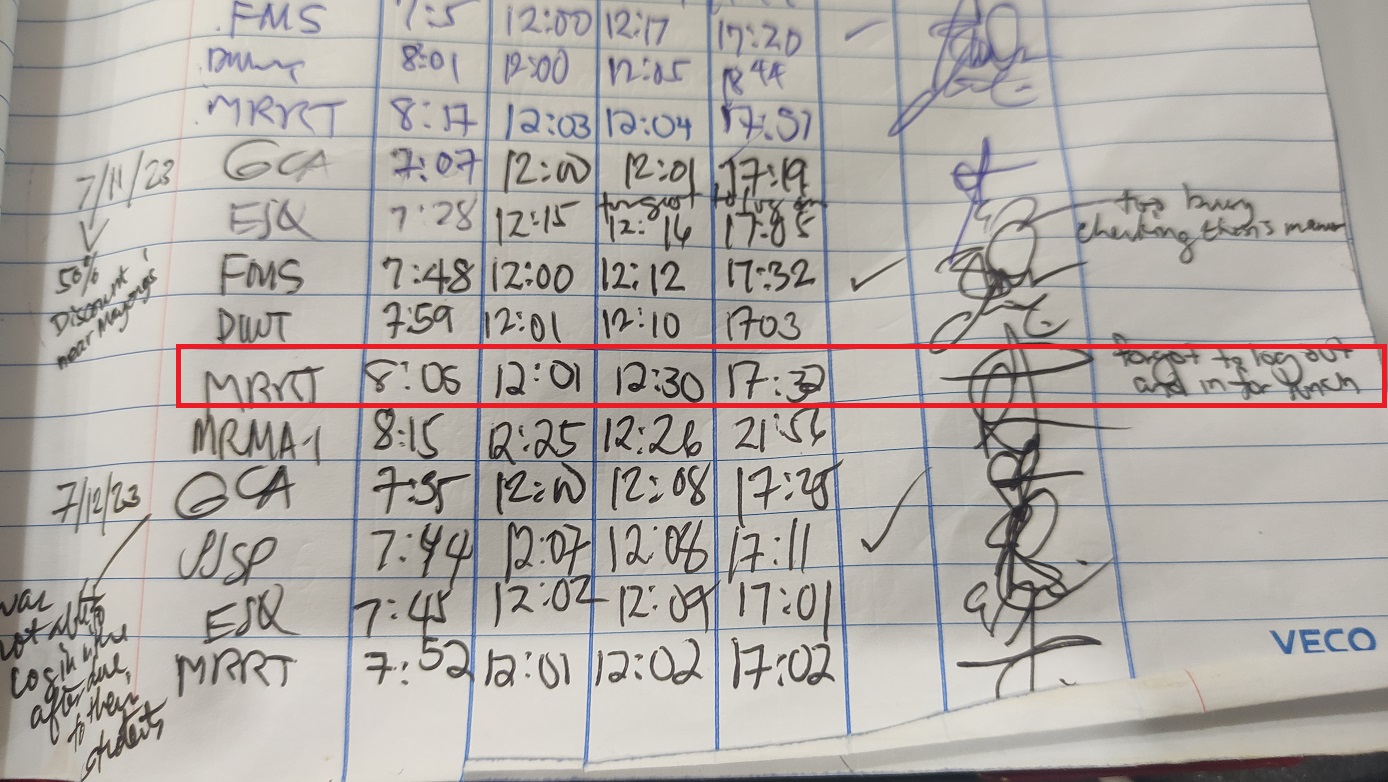 FMS 7:5 12:00 12:17 17:20
8:01 12:00 12:05 1844
MRRT 8:17 12:03 12:04 17:51
7/11/23 GCA 7:07 12:00 12:01 17:19
forgot to log in
ESQ 7:28 12:15 12:16 17:05 too busy
checking thesis
50% FMS 7:48 12:00 12:12 17:32
Discount DWT 7:59 12:01 12:10 1703
near
forgot to log out
MRRT 8:05 12:01 12:30 17:32 and in for lunch
MRMA-1 8:15 12:25 12:26 21:56
7/12/23 GCA 7:35 12:00 12:08 17:25
JJSP 7:44 12:07 12:08 17:11
ESQ 7:45 12:02 12:09 17:01
VECO
MRRT 7:52 12:01 12:02 17:02
was
not able
to
log in
after
due
to their
students